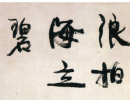 浪拍
海立
碧